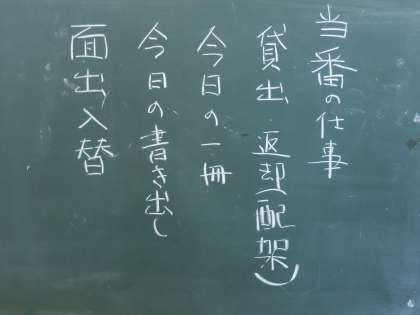 当番の仕事
貸出・返却(配架)
今日の一冊
今日の書き出し
面出入替